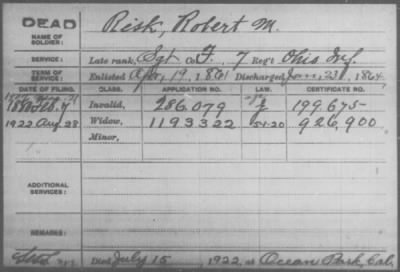 DEAD
NAME OF SOLDIER: Risk, Robert M.
SERVICE: Late rank, Sgt Co. F. 7 Reg't Ohio Inf.
TERM OF SERVICE: Enlisted Apr. 19, 1861 Discharged Jan. 23, 1864
DATE OF FILING. CLASS. APPLICATION NO. LAW. CERTIFICATE NO.
Feb. 7 Invalid, 286.079 199.675
1922 Aug. 28 Widow, 1193322 5-1-20 926,900
Minor,
ADDITIONAL SERVICES:
REMARKS:
Died July 15, 1922, at Ocean Park, Cal.